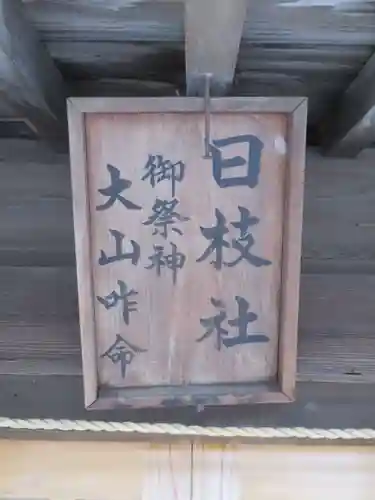 日枝社
御祭神
大山咋命